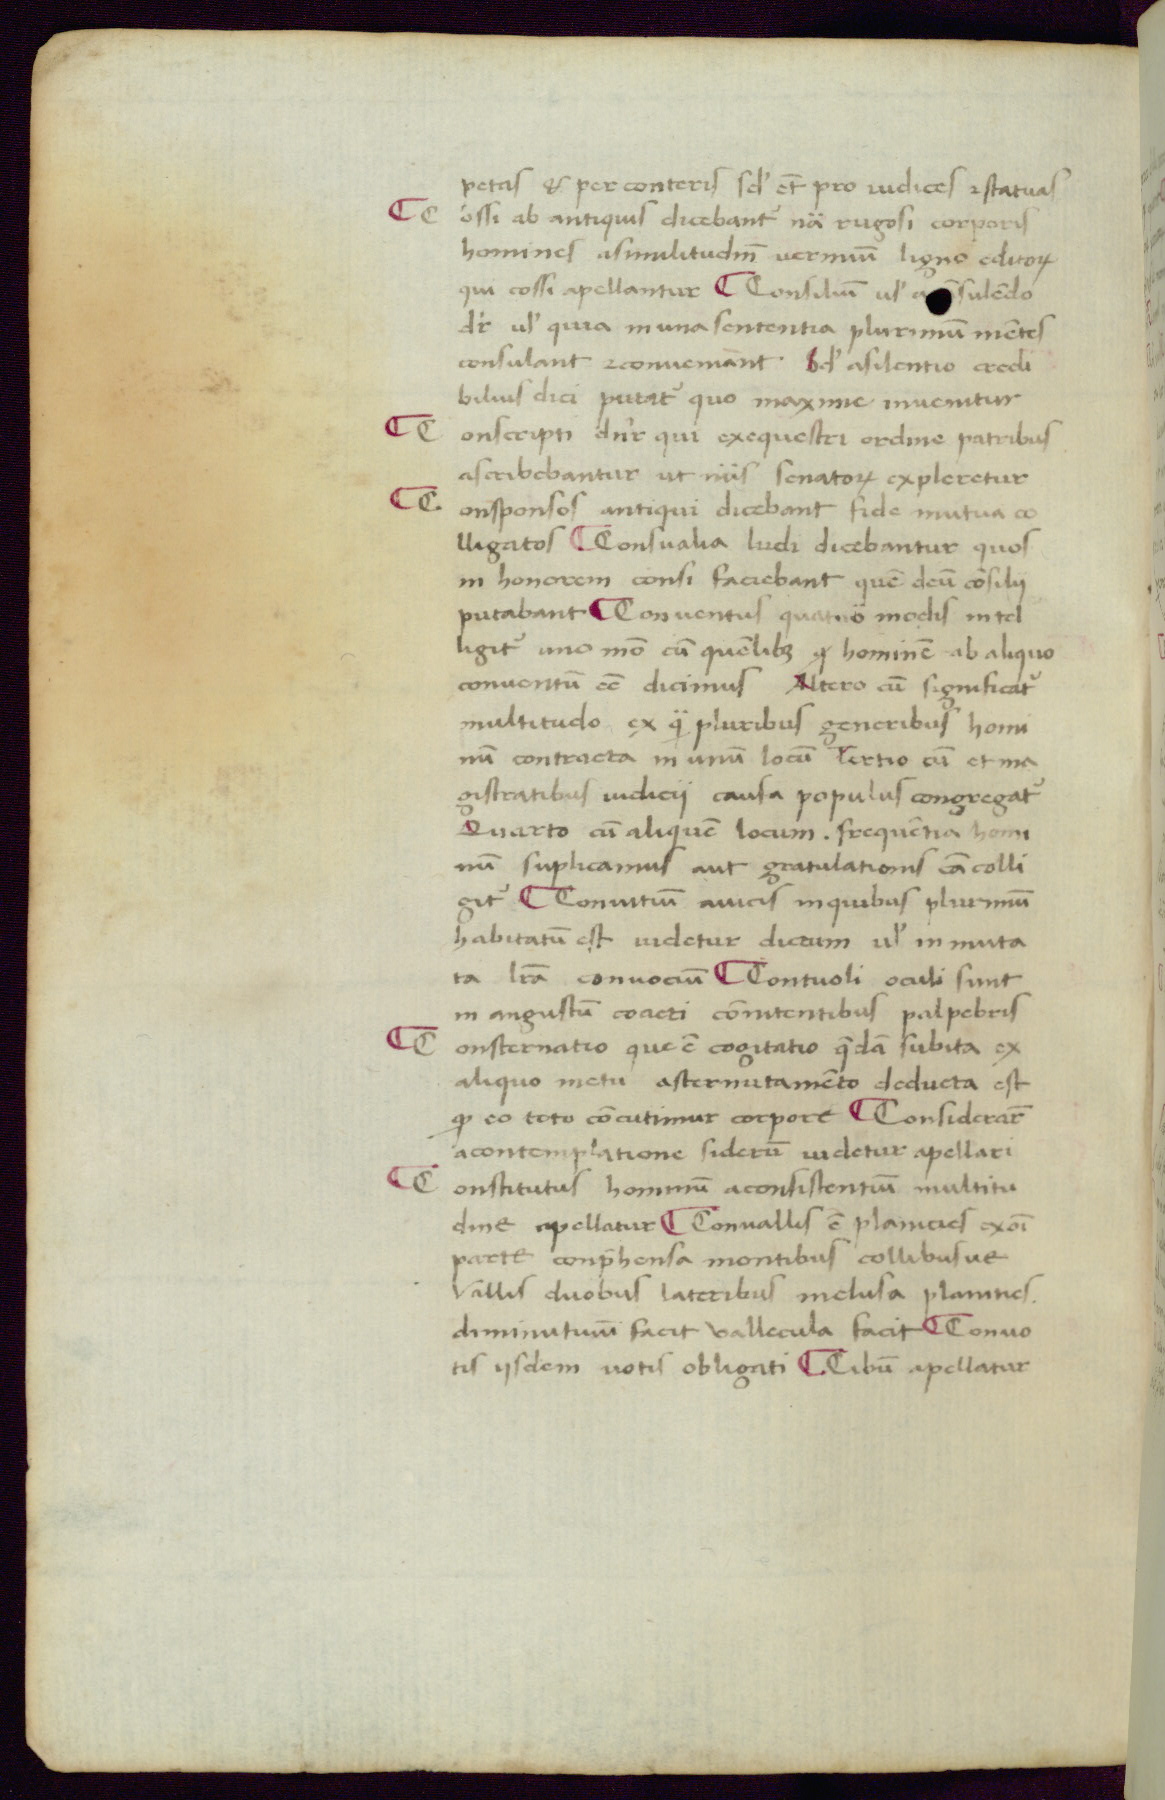 petas & per conteris sꝫ et̄ pro iudices ⁊statuas
¶ C ossi ab antiquis dicebant᷑ nā rugosi corporis
homines asimilitudīn̄ uermiū ligno editoꝝ
qui cossi apellantur ¶ Consiliū ul̓ a sulēdo
dr̄ ul̓ quia in una sententia plurimū mētes
consulant ⁊conueniant. Sꝫ asilentio credi
bilius dici putat᷑ quo maxime inuenitur
¶ C onscripti dn̄r qui exequestri ordine patribus
ascribebantur ut nūs senatoꝝ expleretur
¶ C onsponsos antiqui dicebant fide mutua co
lligatos ¶ Consualia ludi dicebantur quos
in honorem consi faciebant quē deū cōsilij
putabant ¶ Conuentus quatuō modis intel
ligit᷑ uno mō cū quēlibꝫ ꝙ hominē ab aliquo
conuentū eē dicimus Altero cū significat᷑
multitudo ex q̄ pluribus generibus homi
nū contracta in unū locū Tertio cū et ma
gistratibus iudicij causa populus congregat᷑
Quarto cū aliquē locum . frequētia homi
nū suplicamus aut gratulationis cā colli
git᷑ ¶ Conuitiū auicis inquibus plurimū
habitatū est uidetur dictum ul̓ in muta
ta lr̄a conuociū ¶ Contuoli oculi sunt
in angustū coacti cōnitentibus palpebris
¶ C onsternatio que ē cogitatio q̄dā subita ex
aliquo metu asternutamēto deducta est
ꝙ eo toto cōcutimur corpore ¶ Considerar̄
acontemplatione siderū uidetur apellari
¶ C onstitutus hominū aconsistentiū multitu
dine apellatur ¶ Conuallis ē planicies exoī
parte conp̄hensa montibus collibusue
Vallis duobus lateribus inclusa planities.
diminutiuū facit vallecula facit ¶ Conuo
tis ijsdem uotis obligati ¶ Cibū apellatur